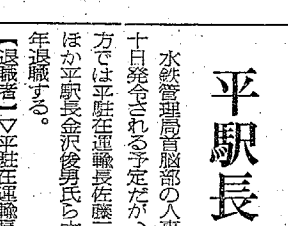 平駅長
水鉄管理局首脳部の人事
十日発令される予定だが、
方では平駐在運輸長佐藤
ほか平駅長金沢俊男氏ら
年退職する。
【退職者】▽平駐在運輸長